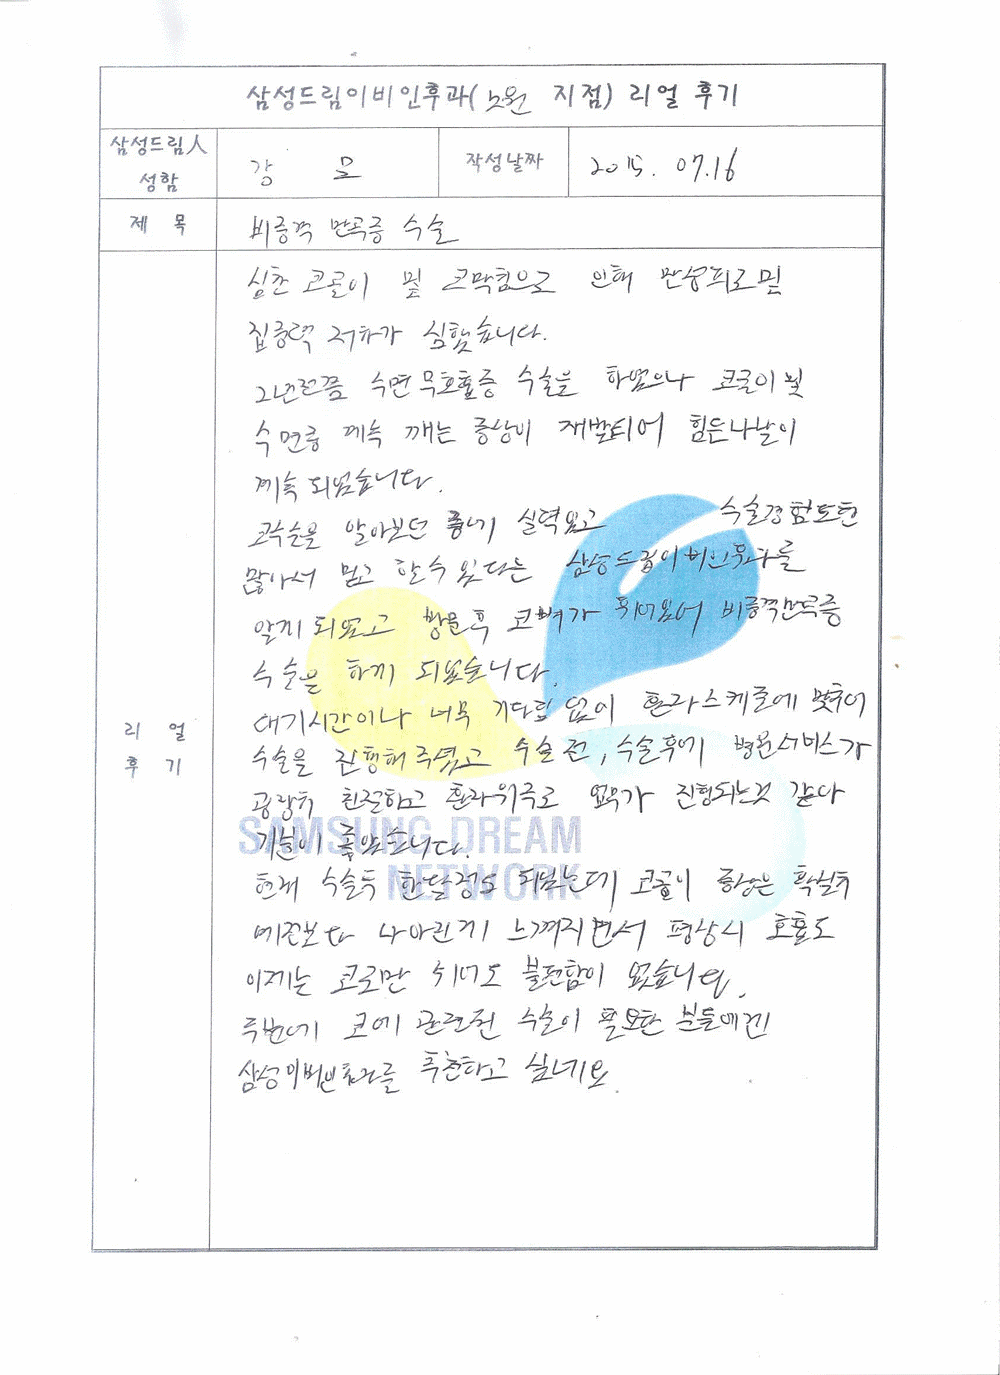 삼성드림이비인후과(노원 지점) 리얼 후기
삼성드림人
성함
강 모
작성날짜
2015. 07.16
제 목
비중격 만곡증 수술
리 얼
후 기
심한 코골이 및 코막힘으로 인해 만성피로 및
집중력 저하가 심했습니다.
2년전쯤 수면 무호흡증 수술을 하였으나 코골이 및
수면중 계속 깨는 증상이 재발되어 힘든나날이
계속 되었습니다.
코수술을 알아보던 중에 실력있고 수술경험또한
많아서 믿고 할수 있다는 삼성드림이비인후과를
알게 되었고 방문후 코뼈가 휘어있어 비중격만곡증
수술을 하게 되었습니다.
대기시간이나 너무 기다림 없이 환자스케줄에 맞추어
수술을 진행해 주셨고 수술 전, 수술후에 병원서비스가
굉장히 친절하고 환자위주로 업무가 진행되는것 같아
기분이 좋았습니다.
현재 수술후 한달정도 되었는데 코골이 증상은 확실히
예전보다 나아진게 느껴지면서 평상시 호흡도
이제는 코로만 쉬어도 불편함이 없습니다.
주변에 코에 관련된 수술이 필요한 분들에겐
삼성이비인후과를 추천하고 싶네요
SAMSUNG DREAM
NETWORK